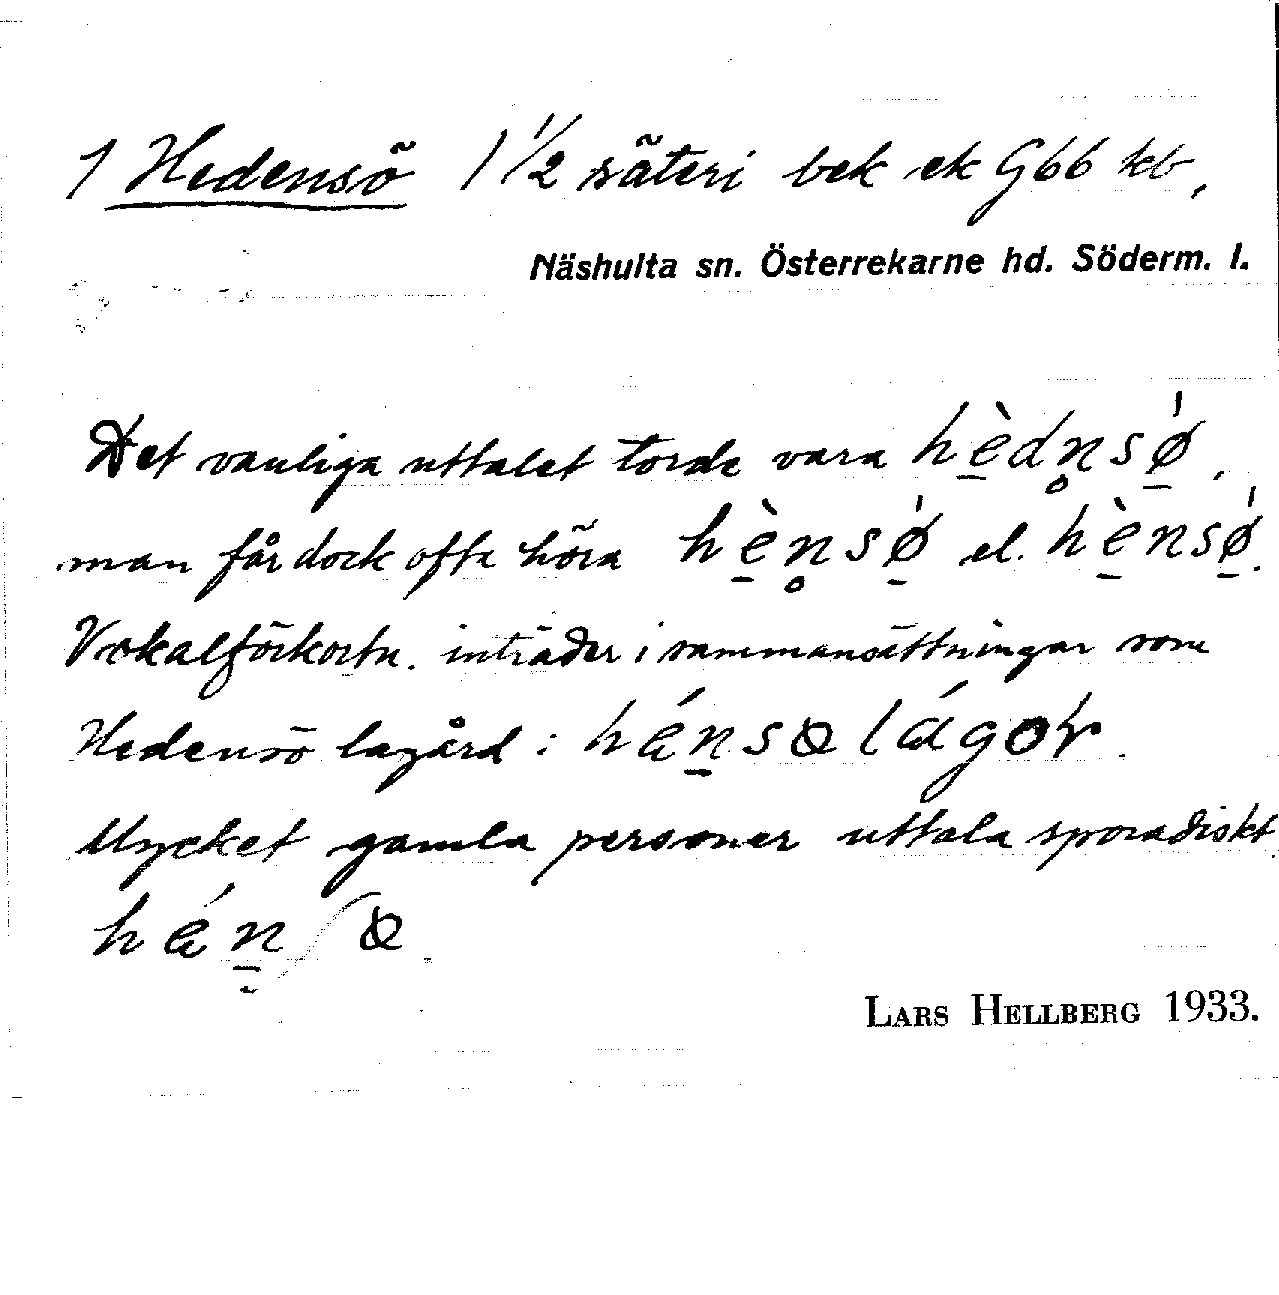 1 Hedensö 1 1/2 säteri bek ek G66 kb,
Näshulta sn. Österrekarne hd. Söderm. l.
Det vanliga uttalet torde vara hè̱dn̥sǿ̱,
man får dock ofta höra hè̱n̥sǿ̱ el. hè̱nsǿ̱.
Vokalförkortn. inträder i sammansättningar som
Hedensö lagård:
Mycket gamla personer uttala sporadiskt
LARS HELLBERG 1933.